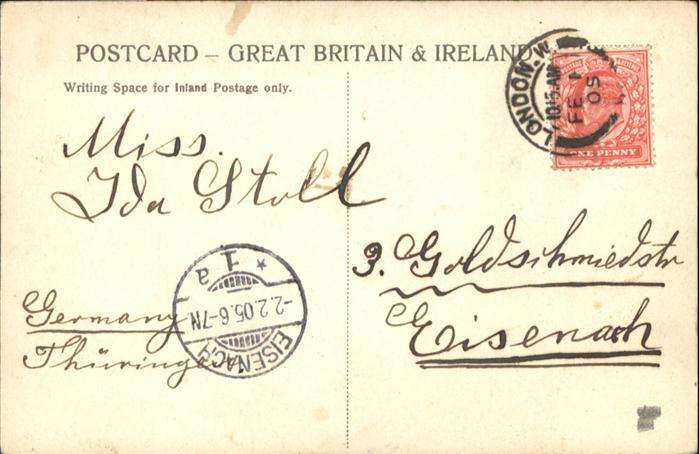 POSTCARD – GREAT BRITAIN & IRELAND
Writing Space for Inland Postage only.
LONDON. W.
10.15 AM
FE 1
05
ONE PENNY
Miss.
Ida Stoll
3. Goldschmiedstr
Eisenach
Germany
Thüringen
EISENACH
-2.2.05.6-7N
* 1 a